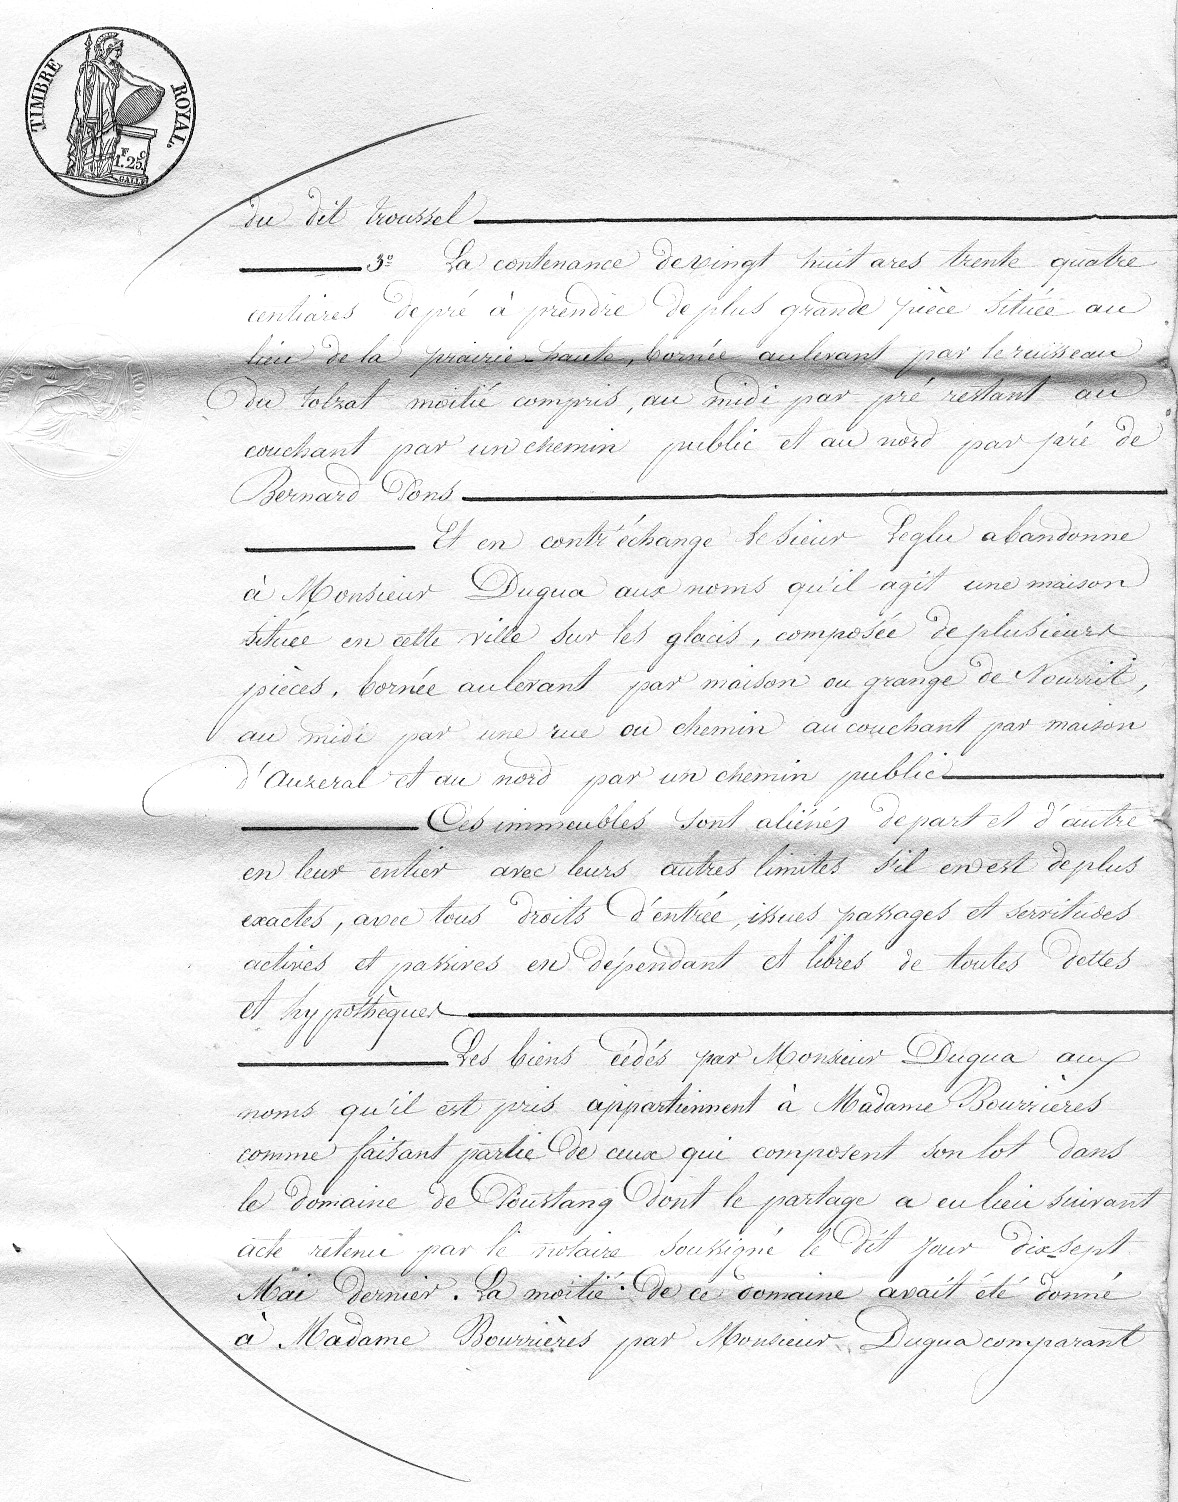 TIMBRE ROYAL.
F C
1.25
GALLE
du dit troussel
3º La contenance de vingt huit ares trente quatre
centiares de pré à prendre de plus grande pièce située au
lieu de la prairie-haute, bornée au levant par le ruisseau
du tolzat moitié compris, au midi par pré restant au
couchant par un chemin public et au nord par pré de
Bernard Pons
Et en contr'échange le sieur Leglu abandonne
à Monsieur Dugua aux noms qu'il agit une maison
située en cette ville sur les glacis, composée de plusieurs
pièces, bornée au levant par maison ou grange de Nourrit,
au midi par une rue ou chemin au couchant par maison
d'Auzeral et au nord par un chemin public
Ces immeubles sont aliénés de part et d'autre
en leur entier avec leurs autres limites s'il en est de plus
exactes, avec tous droits d'entrée, issues passages et servitudes
actives et passives en dépendant et libres de toutes dettes
et hypothèques
Les biens cédés par Monsieur Dugua aux
noms qu'il est pris appartiennent à Madame Bourrières
comme faisant partie de ceux qui composent son lot dans
le domaine de Poustang dont le partage a eu lieu suivant
acte retenu par le notaire soussigné le dit jour dix-sept
Mai dernier. La moitié de ce domaine avait été donné
à Madame Bourrières par Monsieur Dugua comparant